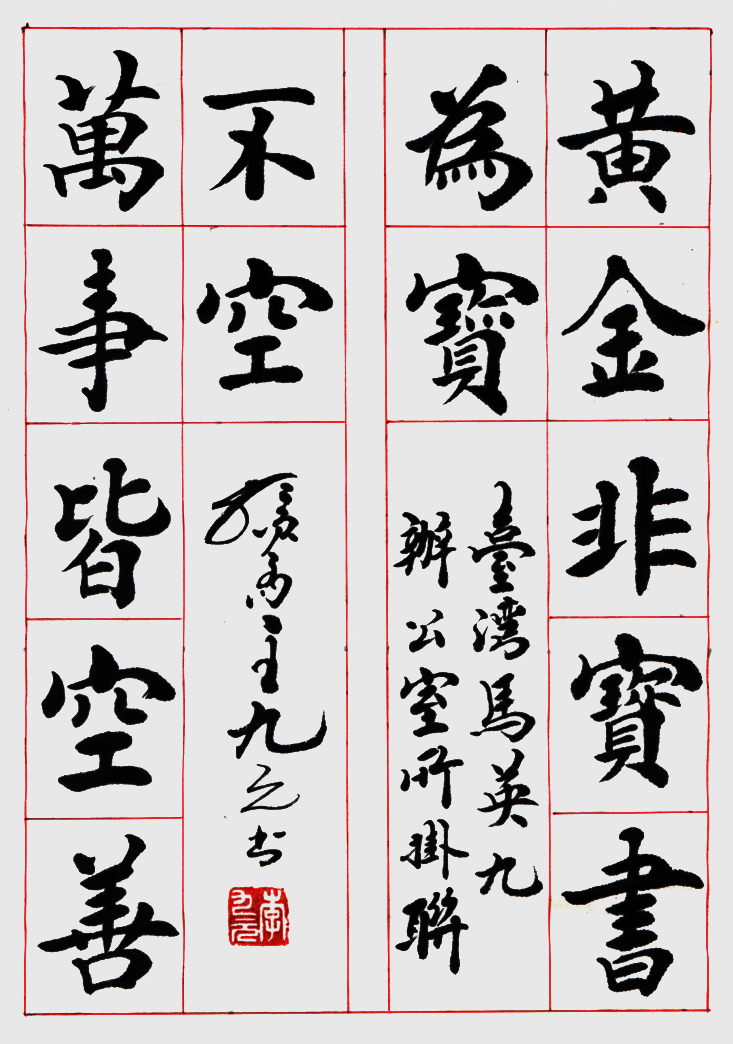 黄金非寶書
為寶
臺灣馬英九
辦公室所掛聯
萬事皆空善
不空
主九之书